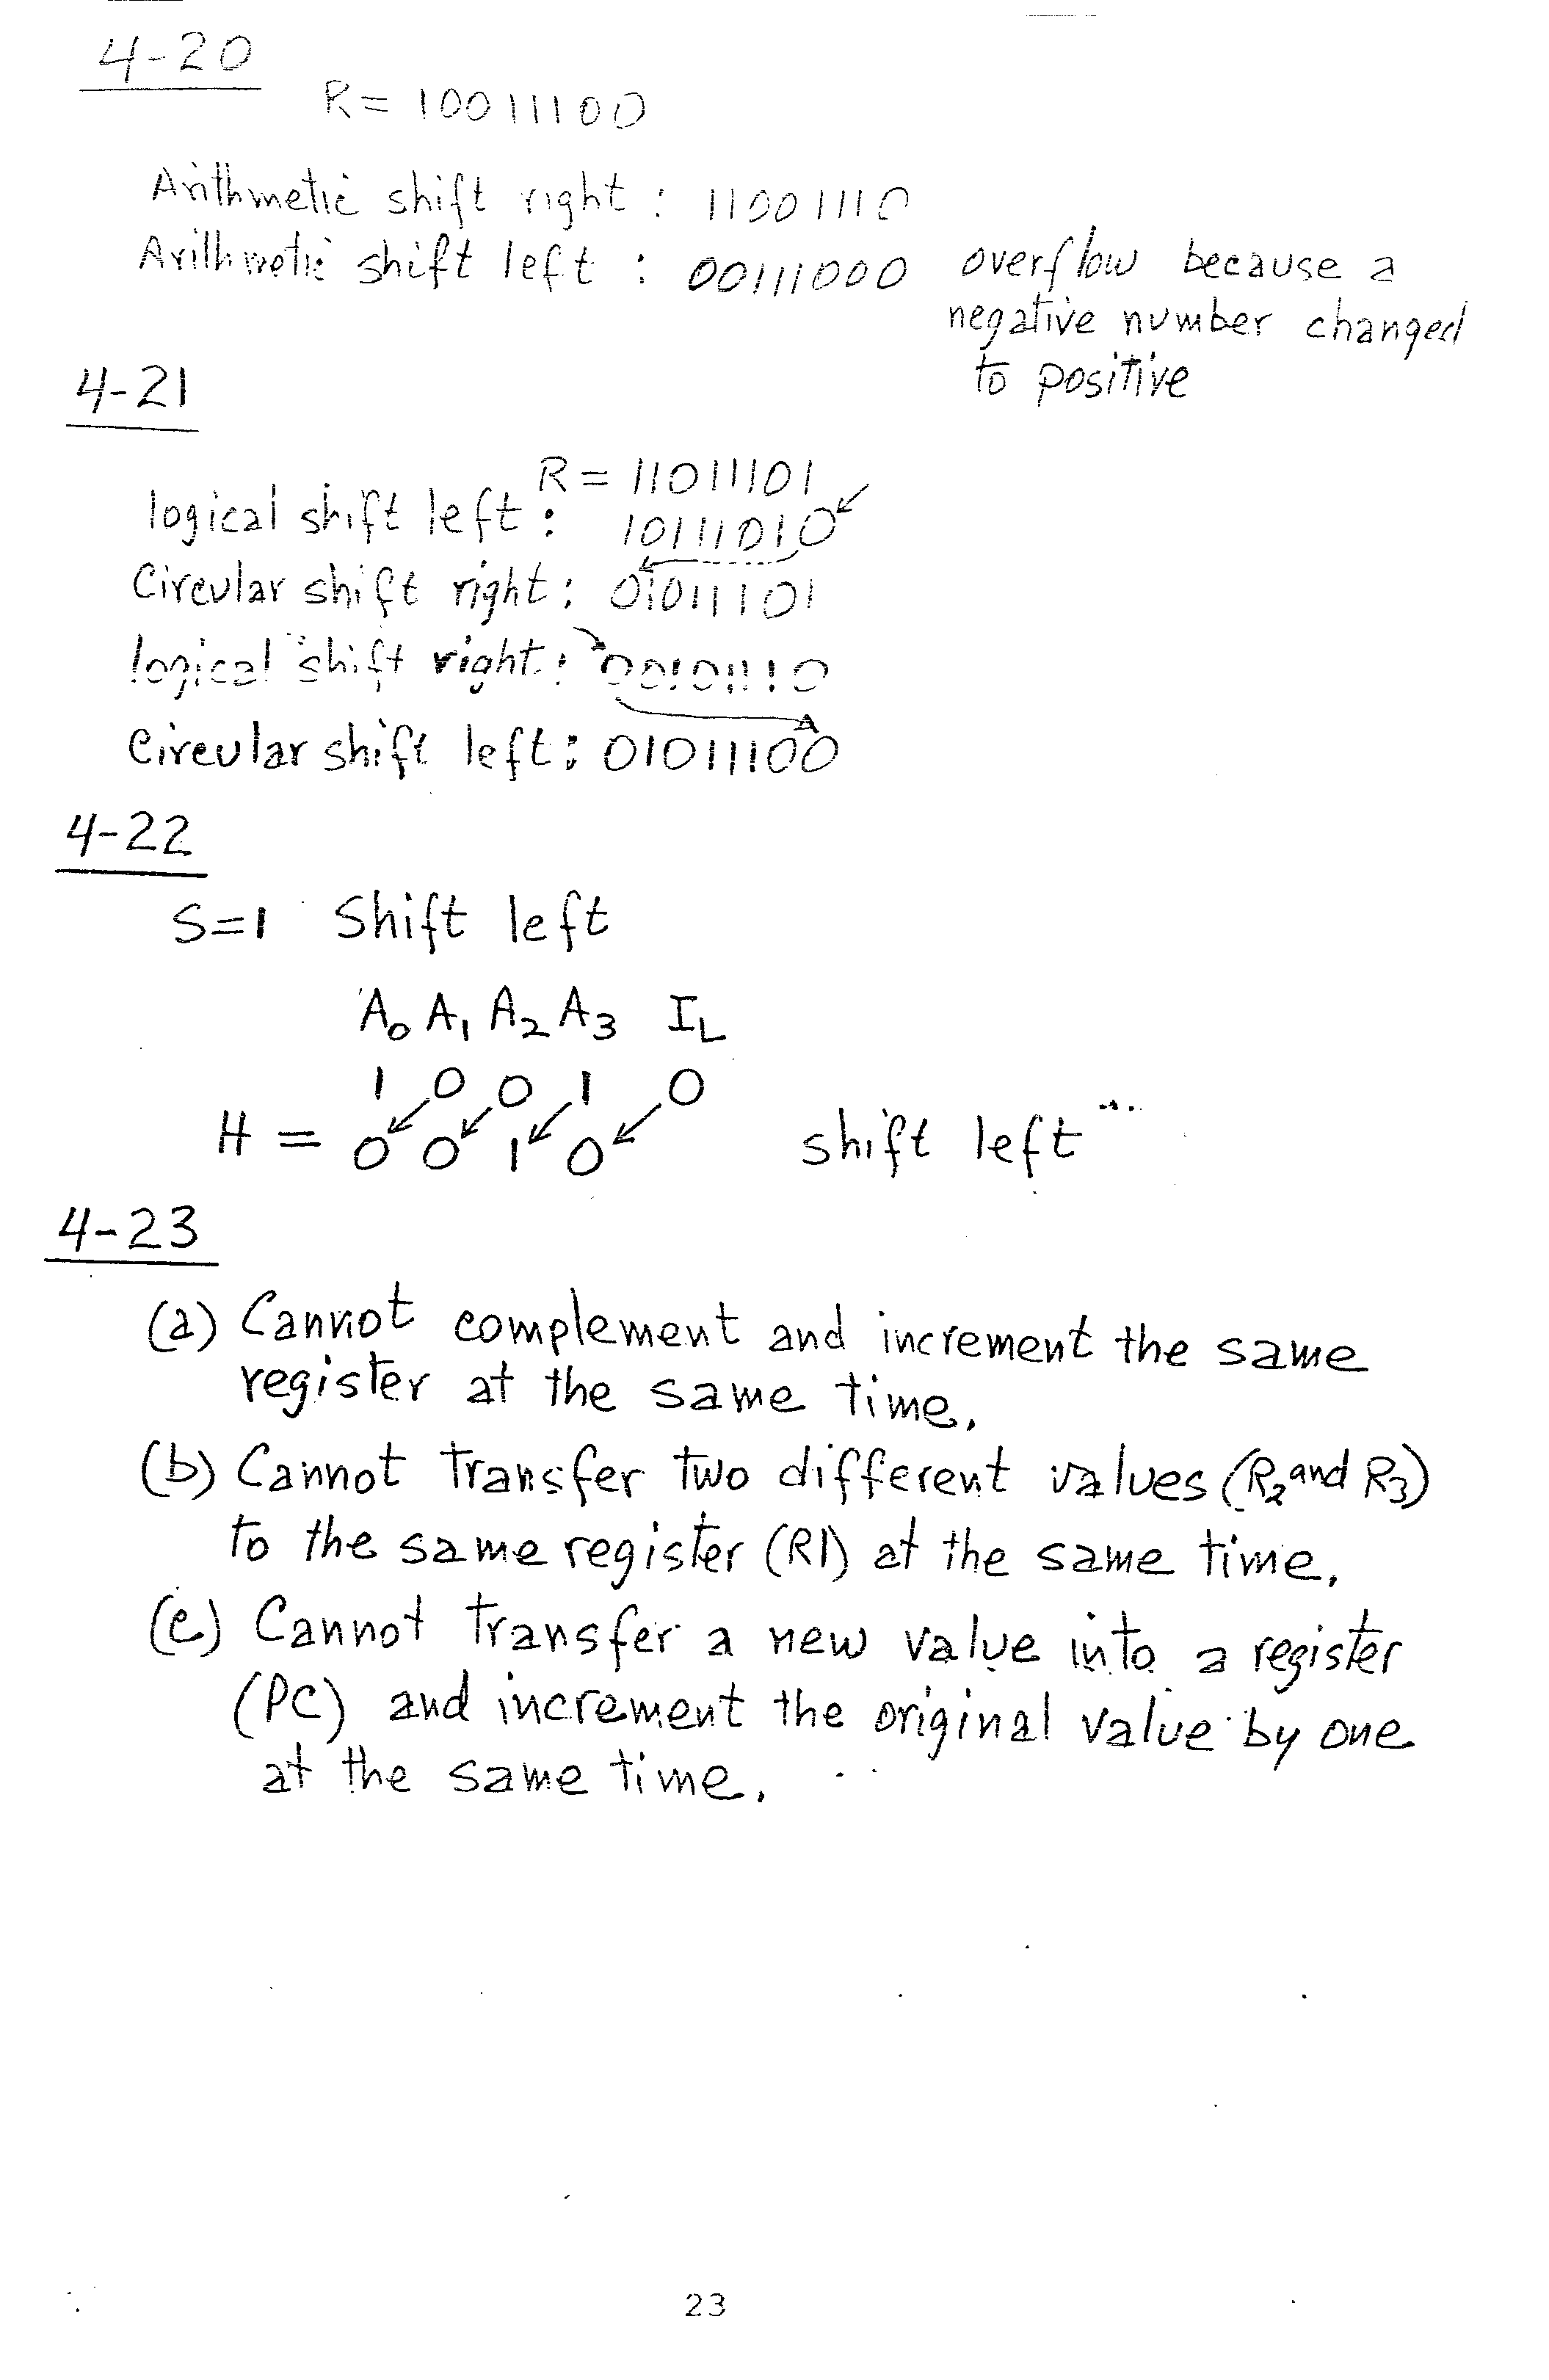 4-20
R = 10011100
Arithmetic shift right : 11001110
Arithmetic shift left : 00111000 overflow because a
negative number changed
to positive
4-21
R = 11011101
logical shift left : 10111010
Circular shift right : 01011101
logical shift right : 00101110
Circular shift left : 01011100
4-22
S=1 Shift left
A0 A1 A2 A3 IL
1 0 0 1 0
H = 0 0 1 0 shift left
4-23
(a) Cannot complement and increment the same
register at the same time.
(b) Cannot transfer two different values (R2 and R3)
to the same register (R1) at the same time.
(c) Cannot transfer a new value into a register
(PC) and increment the original value by one
at the same time.
23